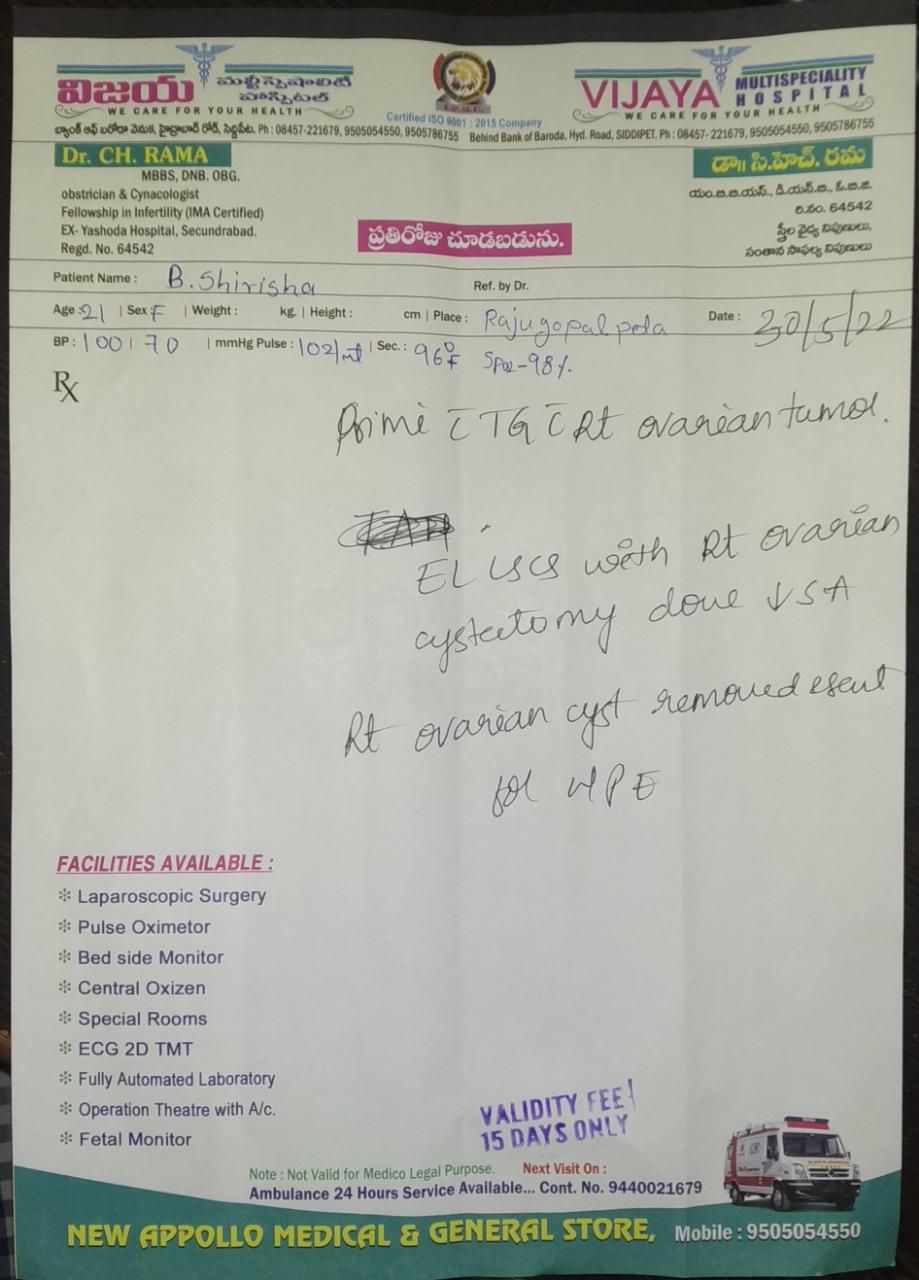 విజయ మల్టీస్పెషాలిటీ హాస్పిటల్
WE CARE FOR YOUR HEALTH
Certified ISO 9001 : 2015 Company
VIJAYA MULTISPECIALITY HOSPITAL
WE CARE FOR YOUR HEALTH
బ్యాంక్ ఆఫ్ బరోడా వెనుక, హైద్రాబాద్ రోడ్, సిద్దిపేట. Ph : 08457-221679, 9505054550, 9505786755
Behind Bank of Baroda, Hyd. Road, SIDDIPET. Ph : 08457- 221679, 9505054550, 9505786755
Dr. CH. RAMA
MBBS, DNB. OBG.
obstrician & Cynacologist
Fellowship in Infertility (IMA Certified)
EX- Yashoda Hospital, Secundrabad.
Regd. No. 64542
డా॥ సి.హెచ్. రమ
యం.బి.బి.యస్., డి.యన్.బి., ఓ.బి.జి.
రి.నం. 64542
స్త్రీల వైద్య నిపుణులు,
సంతాన సాఫల్య నిపుణులు
ప్రతిరోజు చూడబడును.
Patient Name : B. Shirisha Ref. by Dr.
Age : 21 | Sex F | Weight : kg. | Height : cm | Place : Rajugopalpeta Date : 30/5/22
BP : 100 | 70 | mmHg Pulse : 102/mt | Sec. : 96°F SPO2-98%
Rx
Primi c̅ TG c̅ Rt ovarian tumor.
EL LSCS with Rt ovarian
cystectomy done ↓ SA
Rt ovarian cyst removed & sent
for HPE
FACILITIES AVAILABLE :
❇ Laparoscopic Surgery
❇ Pulse Oximetor
❇ Bed side Monitor
❇ Central Oxizen
❇ Special Rooms
❇ ECG 2D TMT
❇ Fully Automated Laboratory
❇ Operation Theatre with A/c.
❇ Fetal Monitor
VALIDITY FEE
15 DAYS ONLY
Note : Not Valid for Medico Legal Purpose. Next Visit On :
Ambulance 24 Hours Service Available... Cont. No. 9440021679
NEW APPOLLO MEDICAL & GENERAL STORE, Mobile : 9505054550